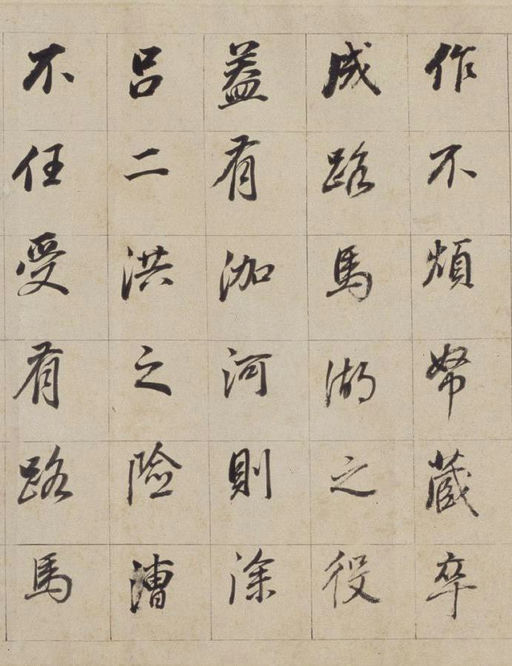 作不煩帑藏卒
成路馬湖之役
葢有泇河則涂
吕二洪之險漕
不任受有路馬